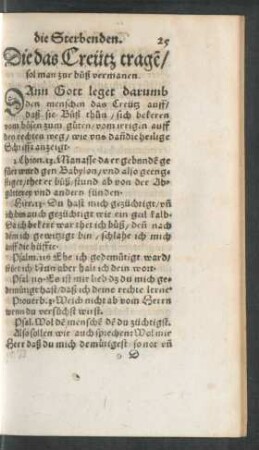 die Sterbenden. 25
Die das Creütz tragē/
sol man zur büß vermanen.
Dann Gott leget darumb
den menschen das Creütz auff/
daß sie Büß thün/sich bekeren
vom bösen zum güten/vom irrigen auff
den rechten weg/wie vns dañ die heilige
Schrifft anzeigt.
Manasse da er gebunden ge
fürt ward gen Babylon/vnd also geeng-
stiget/thet er büß/stund ab von der Ab-
götterey vnd andern sünden.
du hast mich gezüchtigt/vñ
ich bin auch gezüchtigt wie ein geil kalb
da ich bekert war thet ich büß/deñ nach
dem ich gewitzigt bin/schlahe ich mich
auff die hüffte.
Psalm. Ehe ich gedemütigt ward/
irret ich/nun aber halt ich dein wort.
Psal. Es ist mir lieb dz du mich ge-
demütigt hast/daß ich deine rechte lerne
Prouerb. 3. Weich nicht ab vom Herrn
wenn du versücht wirst.
Psal. Wol dē menschē dē du züchtigst.
Also sollen wir auch sprechen: Wol mir
Herr daß du mich demütigest/so not vñ
D